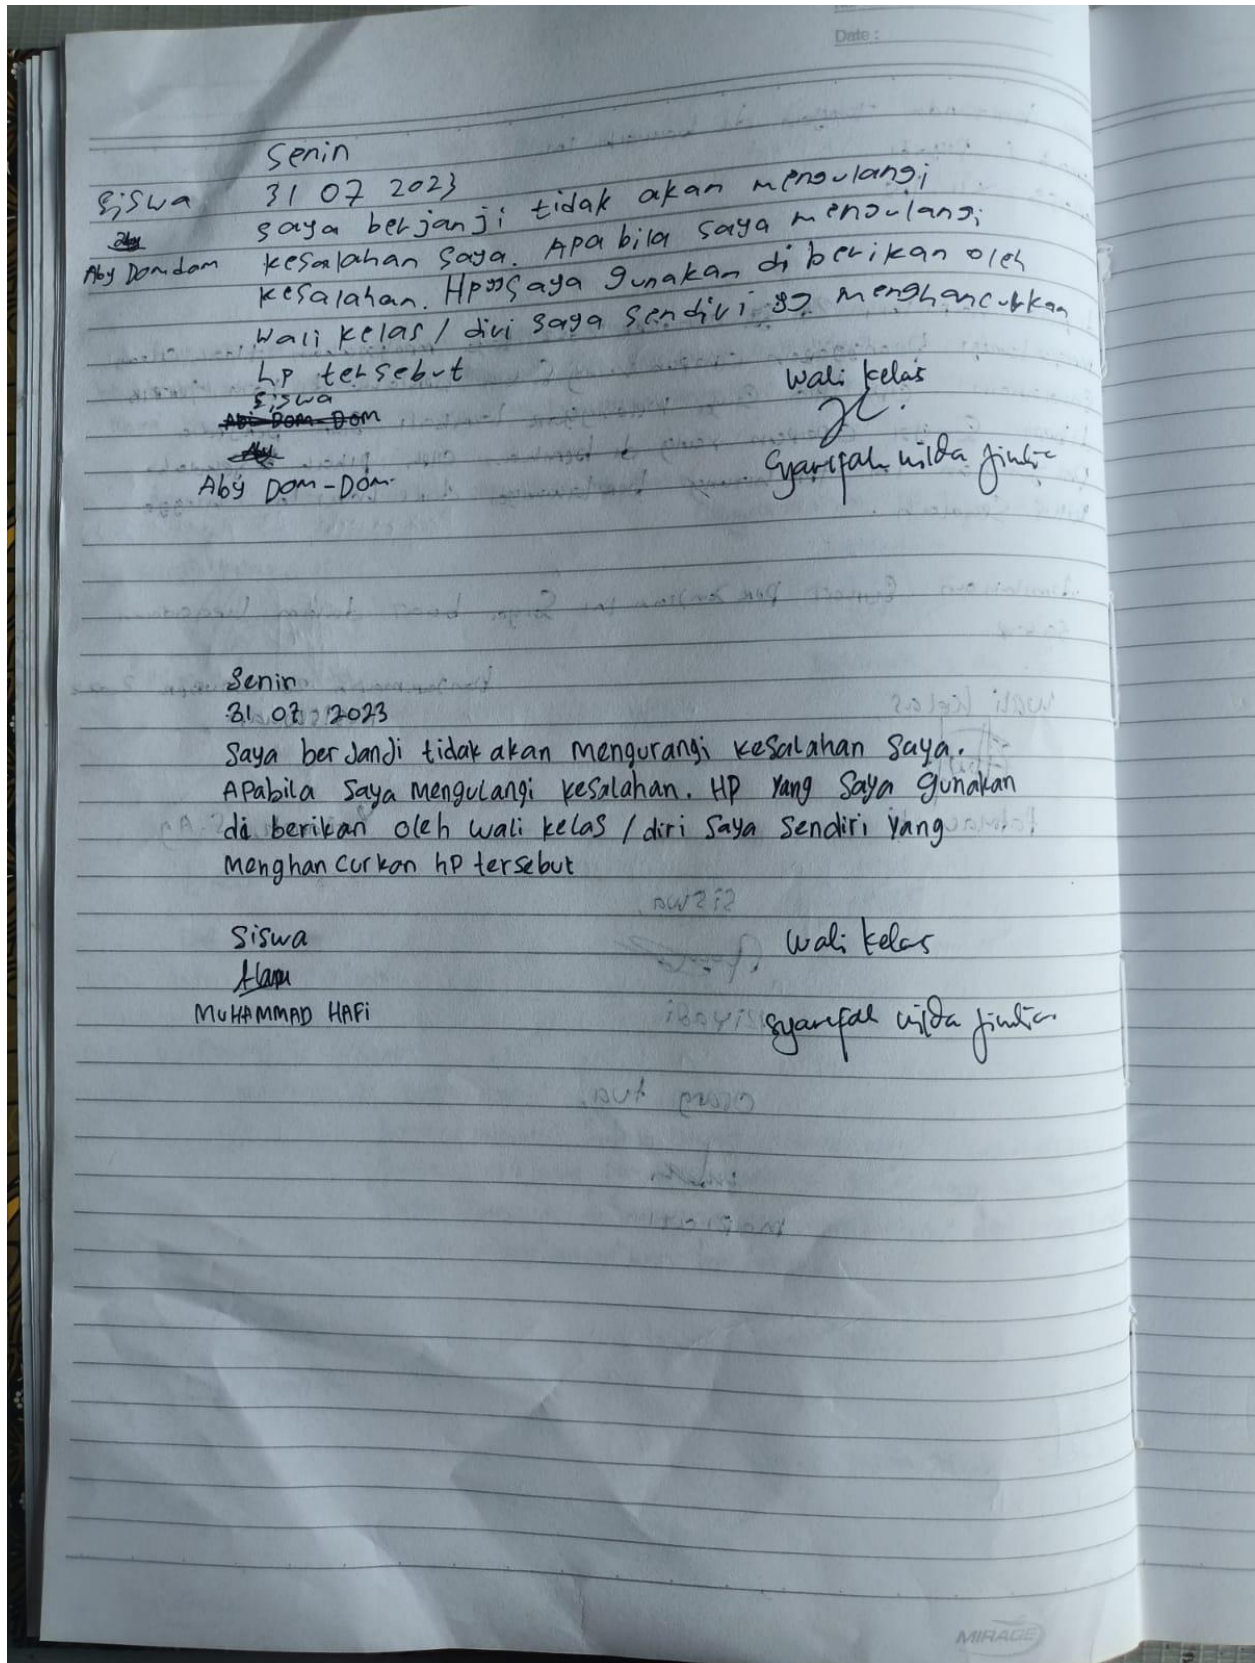 Date :
Senin
Siswa 31 07 2023
saya berjanji tidak akan mengulangi
Aby Domdam kesalahan saya. Apa bila saya mengulangi
kesalahan. HP saya gunakan di berikan oleh
wali kelas / diri saya sendiri yg menghancurkan
hp tersebut
Siswa
Wali kelas
Abi Dom-Dom
Aby Dom-Dom.
Syarifah
Senin
31 07 2023
Saya ber Jandi tidak akan mengurangi kesalahan saya.
APabila Saya Mengulangi kesalahan. HP Yang Saya gunakan
di berikan oleh wali kelas / diri Saya Sendiri Yang
Menghan curkan hp tersebut
Siswa
Wali kelas
MUHAMMAD HAFi
Syarifah
MIRAGE